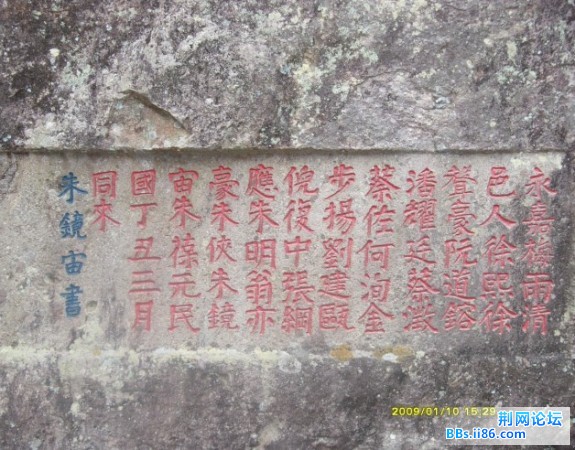 永嘉雨清
邑人徐熙徐
聲豪阮道鎔
潘耀廷蔡澂
蔡佐何洵金
步揚劉建甌
倪復中張綱
應朱明翁亦
豪朱俠朱鏡
宙朱葆元民
國丁丑三月
同來
朱鏡宙書
2009/01/10 15:29
荆网论坛
BBs.ii86.com